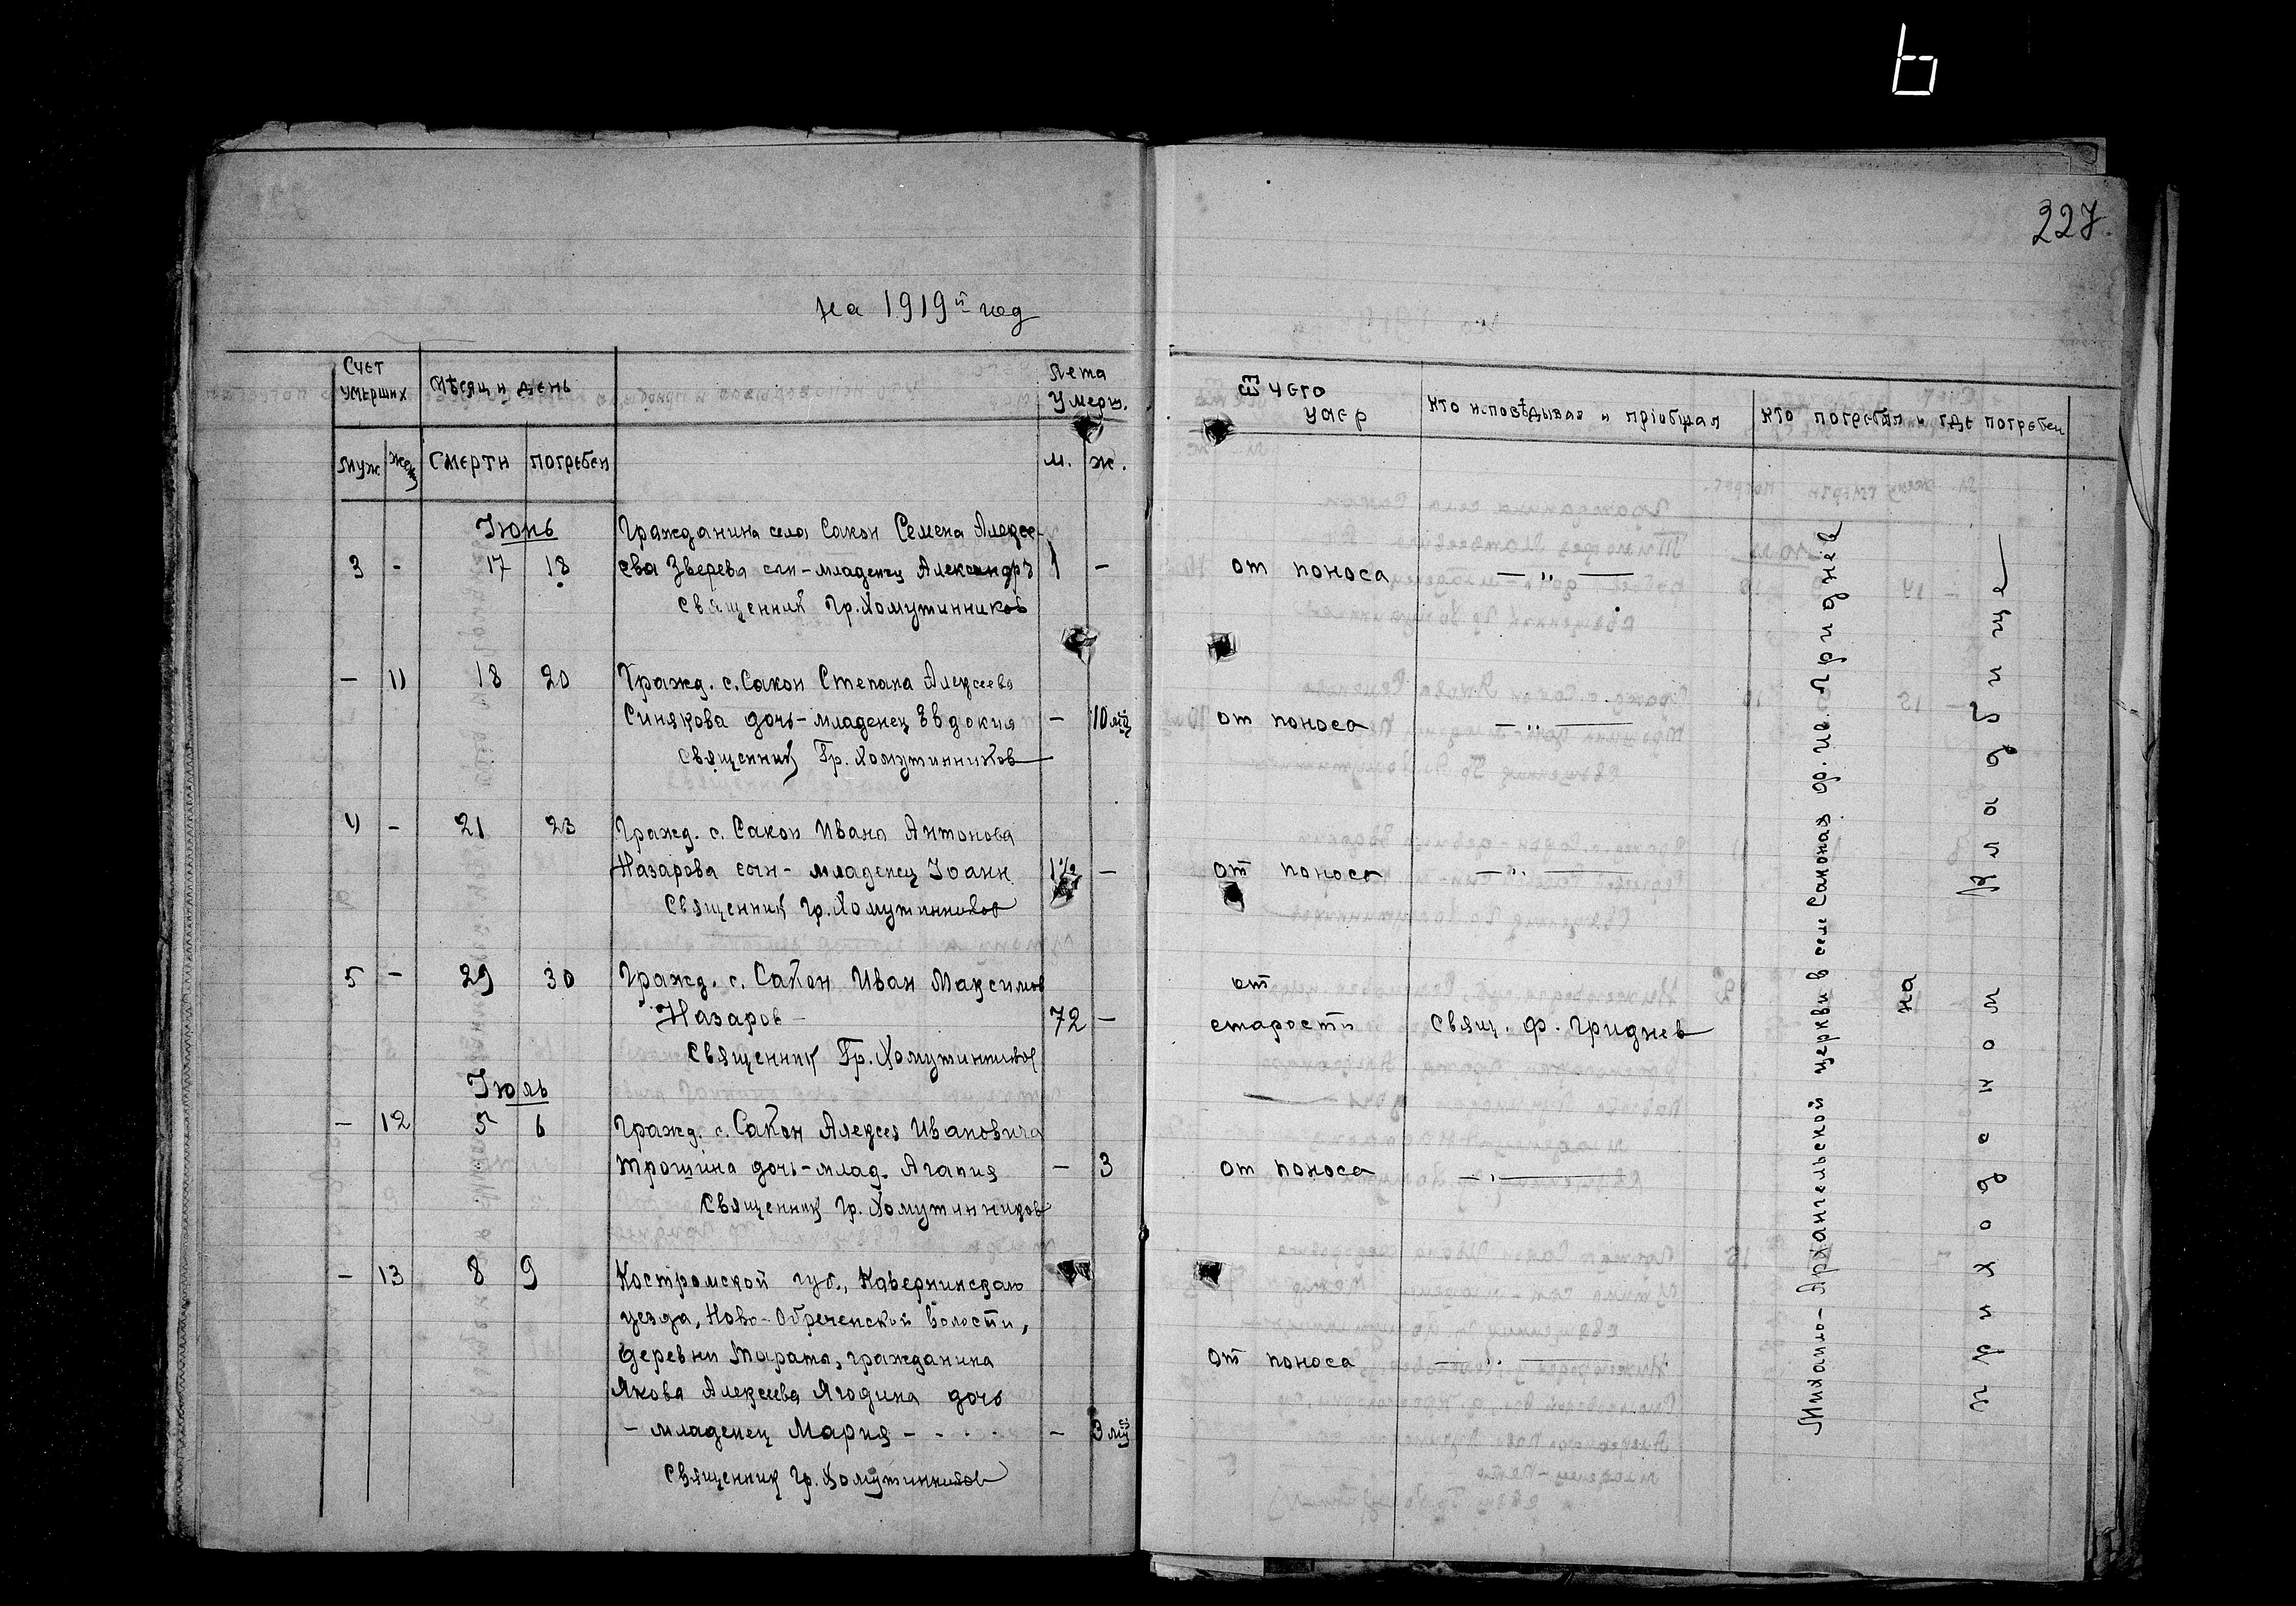 6
227.
на 1919й год
Счет умерших
Мѣсяц и день
Лета умерш.
От чего умер
кто исповѣдывал и пріобщал
кто погребал и гдѣ погребен
муж
жен
смерти
погребен
м.
ж.
Іюнь
Гражданина села Сакон Семена Алексе-
3 - 17 18 ева Зверева сын - младенец Александръ 1 - от поноса — " —
Священник Гр. Хомутинников
- 11 18 20 Гражд. с. Сакон Степана Алексеева
Синякова дочь - младенец Евдокия - 10 мц от поноса — " —
Священник Гр. Хомутинников
4 - 21 23 Гражд. с. Сакон Ивана Антонова
Назарова сын - младенец Іоанн 1½ - от поноса — " —
Священник Гр. Хомутинников
5 - 29 30 Гражд. с. Сакон Иван Максимов от
Назаров - 72 - старости Свящ. Ф. Гриднев
Священник Гр. Хомутинников
Іюль
- 12 5 6 Гражд. с. Сакон Алексея Ивановича
Трошина дочь - млад. Агапия - 3 от поноса — " —
Священник Гр. Хомутинников
- 13 8 9 Костромской губ., Кавернинскаго
уезда, Ново-Обреченской волости,
деревни гражданина от поноса — " —
Якова Алексеева Ягодина дочь
- младенец Мария - - - - 3 мц
Священник Гр. Хомутинников
Михаило-Архангельской церкви в селе Саконах Гриднев
на
приходском кладбище